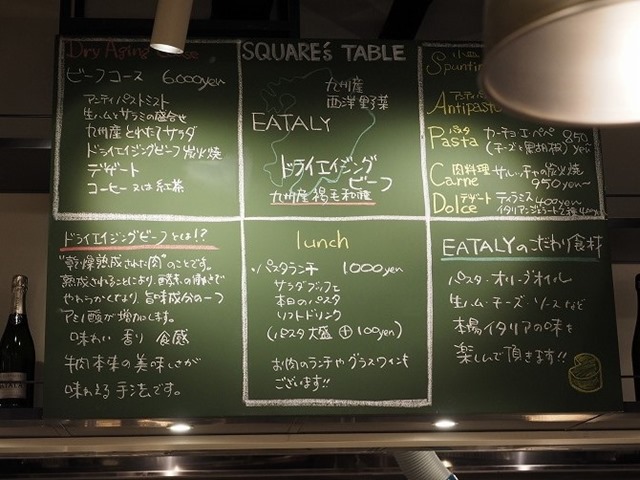 Dry Aging
ビーフコース 6000yen
アンティパストミスト
生ハム・サラミの盛合せ
九州産とれたてサラダ
ドライエイジングビーフ炭火焼
デザート
コーヒー又は紅茶
SQUARE'S TABLE
九州産
西洋野菜
EATALY
ドライエイジング
ビーフ
九州産褐毛和種
Spuntin
Antipast
パスタ
Pasta カーチョエ・ペペ 850yen
(チーズと黒胡椒)
肉料理
Carne サルシッチャの炭火焼
950yen〜
デザート
Dolce ティラミス 400yen
イタリアンジェラート2種
ドライエイジングビーフとは!?
"乾燥熟成された肉"のことです。
熟成されることにより、酵素の働きで
やわらかくなり、旨味成分の一つ
アミノ酸が増加します。
味わい 香り 食感
牛肉本来の美味しさが
味わえる手法です。
lunch
・パスタランチ 1000yen
サラダブッフェ
本日のパスタ
ソフトドリンク
(パスタ大盛 ⊕100yen)
お肉のランチやグラスワインも
ございます!!
EATALYのこだわり食料
パスタ・オリーブオイル
生ハム・チーズ・ソースなど
本場イタリアの味を
楽しんで頂きます!!